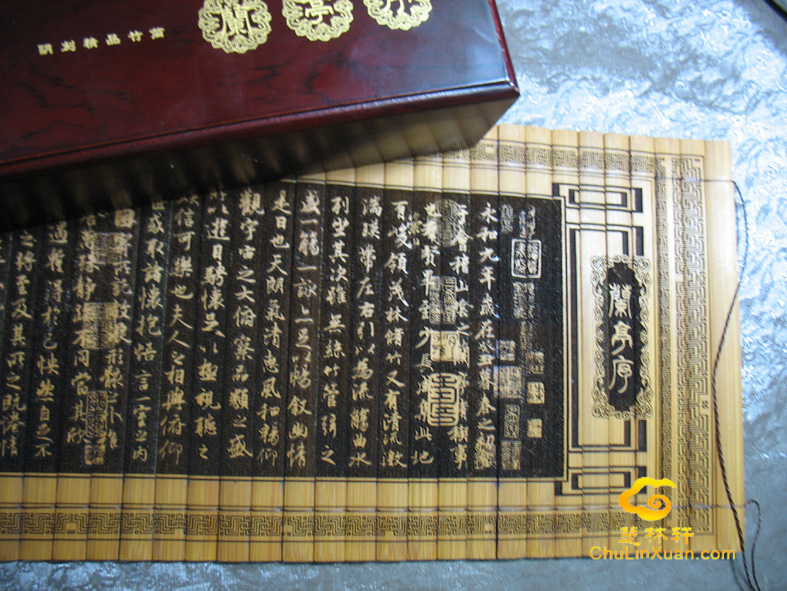 阴刻精品竹简
蘭亭
蘭亭序
永和九年歲在癸丑暮春之初
會稽山陰之蘭亭脩稧事
也羣賢畢至少長咸集此地
有峻領茂林脩竹又有清流激
湍暎帶左右引以為流觴曲水
列坐其次雖無絲竹管弦之
盛一觴一詠亦足以暢敘幽情
是日也天朗氣清惠風和暢仰
觀宇宙之大俯察品類之盛
所以遊目騁懷足以極視聽之
信可樂也夫人之相與俯仰
世或取諸懷抱悟言一室之內
因寄所託放浪形骸之外雖
萬殊靜躁不同當其欣
遇暫得於己快然自足不
之將至及其所之既惓情
楚林轩
ChuLinXuan.com